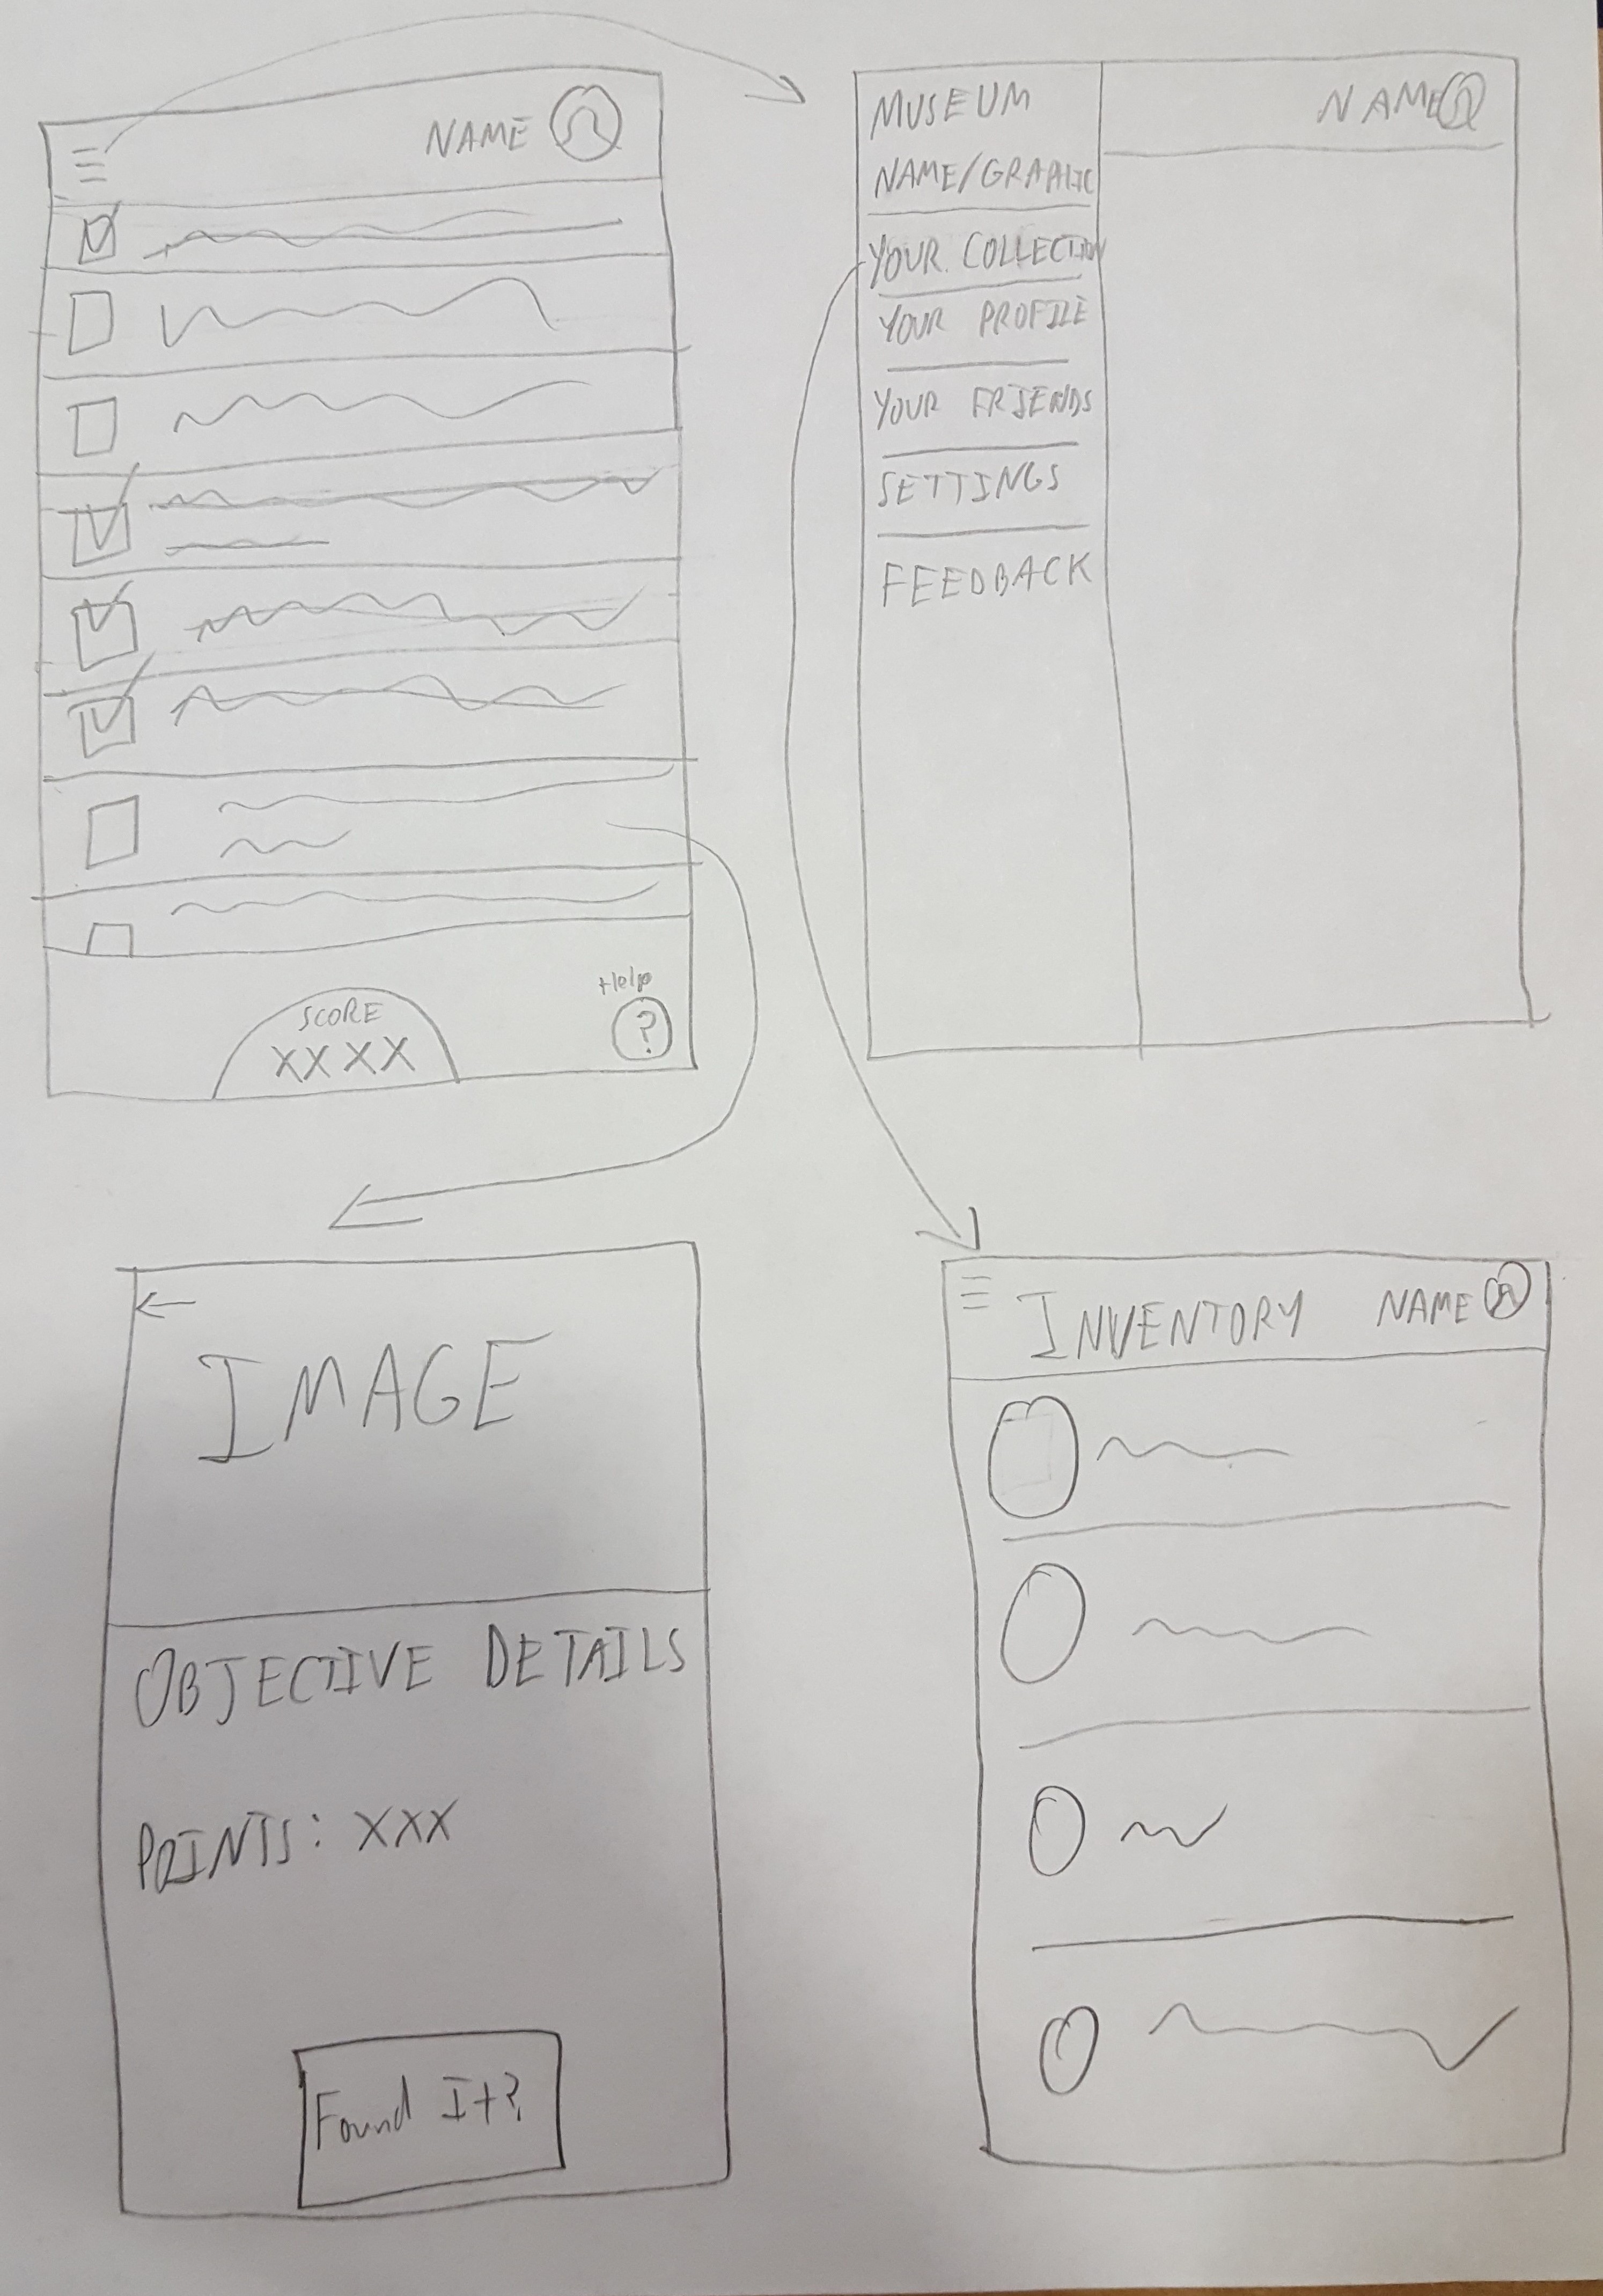 NAME
SCORE
XXXX
Help
?
MUSEUM
NAME/GRAPHIC
NAME
YOUR COLLECTION
YOUR PROFILE
YOUR FRIENDS
SETTINGS
FEEDBACK
IMAGE
OBJECTIVE DETAILS
POINTS: XXX
Found It?
INVENTORY NAME